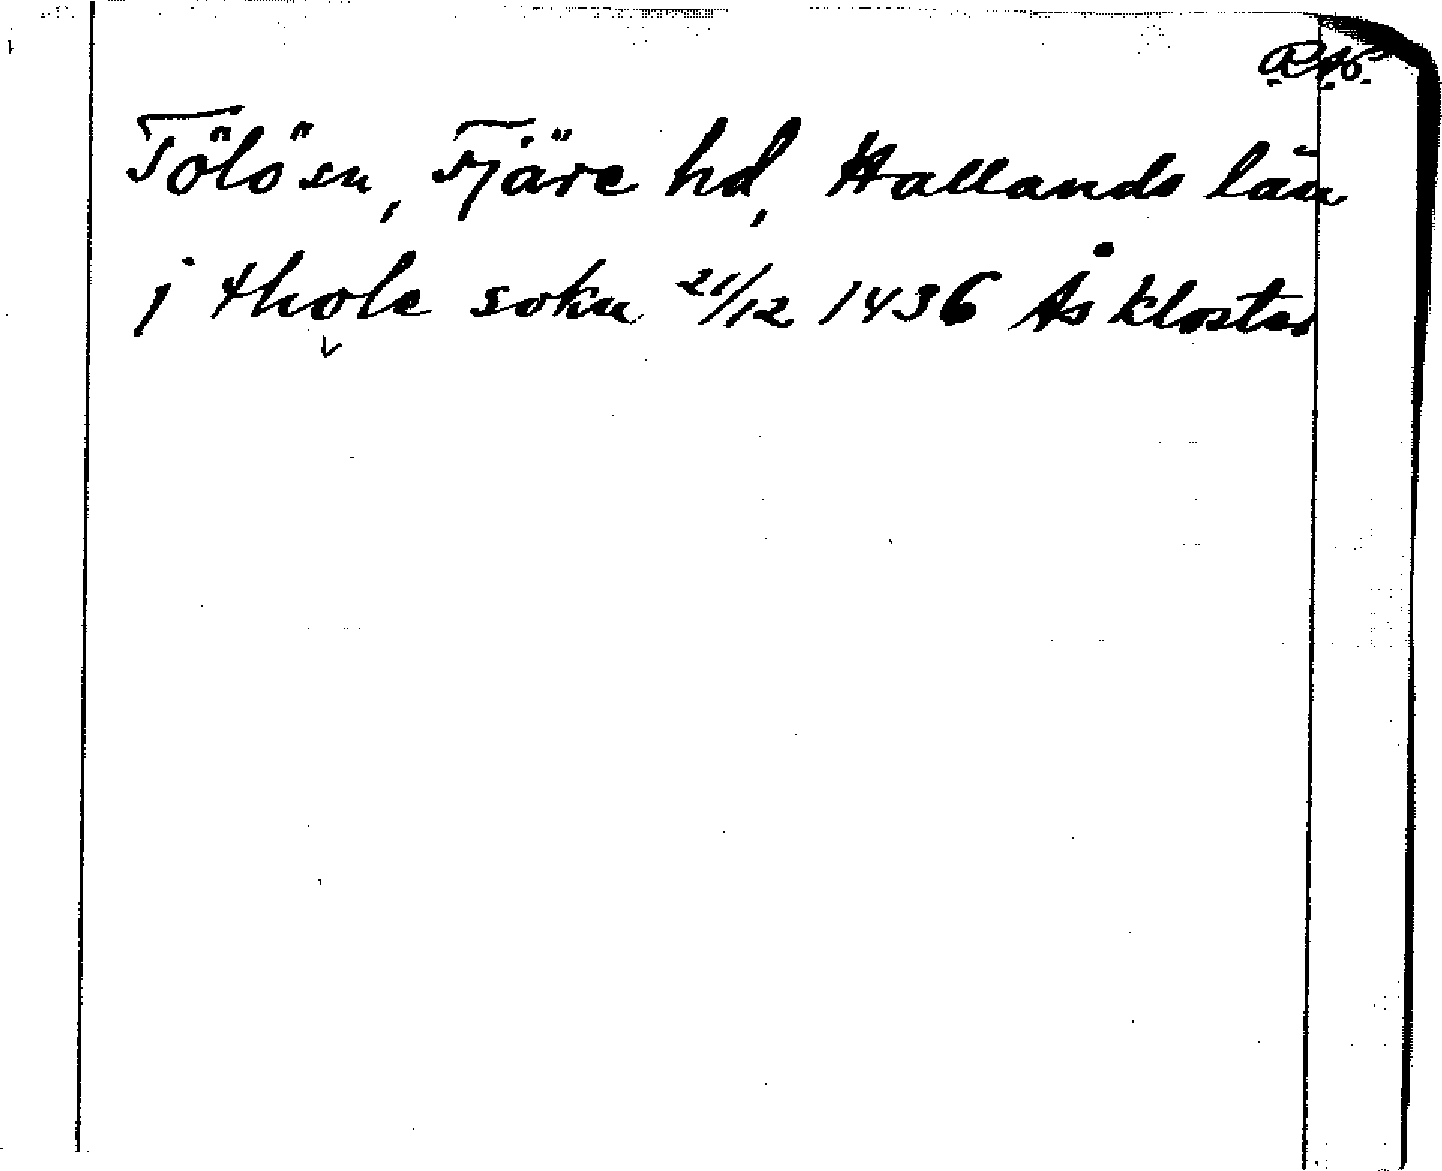 Tölö sn, Fjäre hd, Hallands län
j thole sokn 21/12 1436 Ås kloster